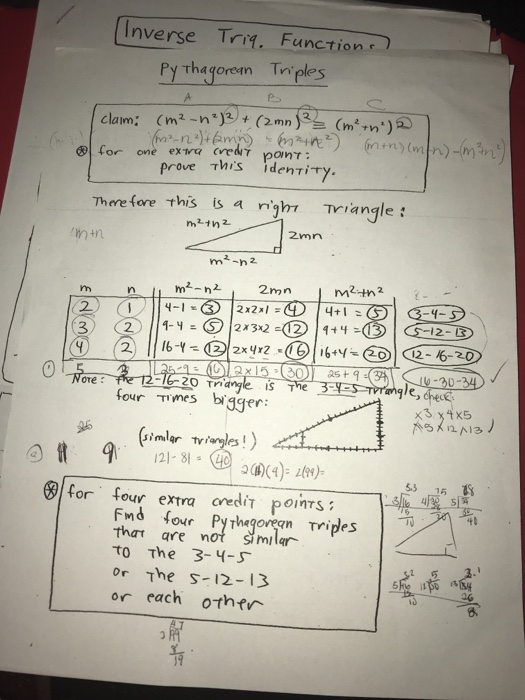 Inverse Trig. Functions
Pythagorean Triples
A B C
claim: (m²-n²)² + (2mn)² = (m²+n²)²
(m²-n²)+(2mn) = (m²+n²) (m+n)(m-n)-(m²+n²)
⊛ for one extra credit point:
prove this identity.
Therefore this is a right triangle:
m+n
m²+n²
2mn
m²-n²
m n m²-n² 2mn m²+n²
2 1 4-1=3 2x2x1=4 4+1=5 3-4-5
3 2 9-4=5 2x3x2=12 9+4=13 5-12-13
4 2 16-4=12 2x4x2=16 16+4=20 12-16-20
① 5 3 25-9=16 2x15=30 25+9=34 16-30-34 ✓
Note: the 12-16-20 triangle is the 3-4-5 triangle,
four times bigger:
check:
x3x4x5
x5x12x13
(similar triangles!)
25
② 11 9 121-81=40 2(11)(9)=2(99)=
⊛ for four extra credit points:
Find four Pythagorean triples
that are not similar
to the 3-4-5
or the 5-12-13
or each other